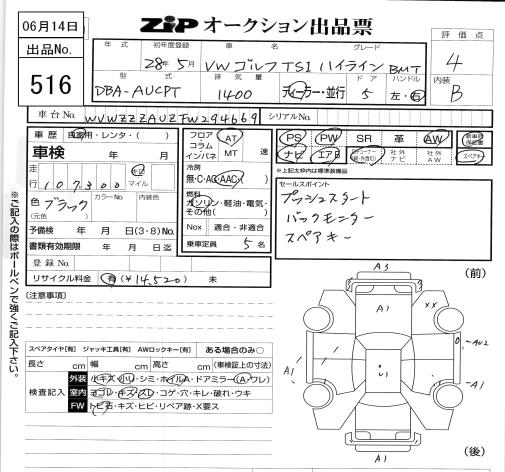 06月14日
出品No.
516
ZIP オークション出品票
年式 初年度登録 車名 グレード
28年5月 VWゴルフTSI ハイライン BMT
型式 排気量 ドア ハンドル
DBA-AUCPT 1400 ディーラー・並行 5 左・右
評価点
4
内装
B
車台No. WVWZZZAUZFW294669 シリアルNo.
車歴 自家用・レンタ・( )
車検 年 月
走行 107,300 km マイル
色 ブラック カラーNo. 内装色
(元色)
予備検 年 月 日(3・8)No.
書類有効期限 年 月 日
登録No.
リサイクル料金 有(¥14,520) 未
フロア AT
コラム
インパネ MT 速
冷房
無・C・AC・AAC
燃料
ガソリン・軽油・電気・
その他( )
Nox 適合・非適合
乗車定員 5 名
PS PW SR 革 AW 新車時保証書
ナビ エアB 社外ナビ 社外AW スペアキー
※上記太枠内は標準装備品
セールスポイント
プッシュスタート
バックモニター
スペアキー
※ご記入の際はボールペンで強くご記入下さい。
[注意事項]
スペアタイヤ[有] ジャッキ工具[有] AWロックキー[有] ある場合のみ○
長さ cm 幅 cm 高さ cm (車検証上の寸法)
検査記入
外装 小キズ・小凹・シミ・ホイルA・ドアミラー(A・ワレ)
室内 ヨゴレ・キズ・スレ・コゲ・穴・キレ・破れ・ウキ
FW トビ石・キズ・ヒビ・リペア跡・X要ス
(前)
A3
A1
XX
AU2
A1
A1
A1
(後)